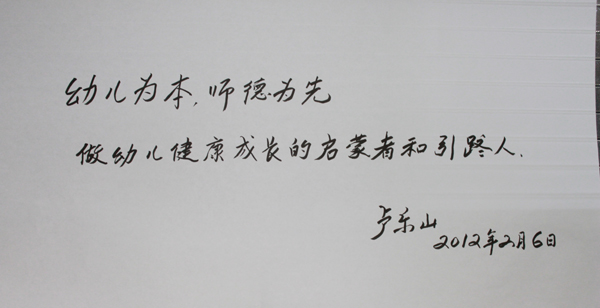 幼儿为本,师德为先
做幼儿健康成长的启蒙者和引路人.
卢乐山
2012年2月6日